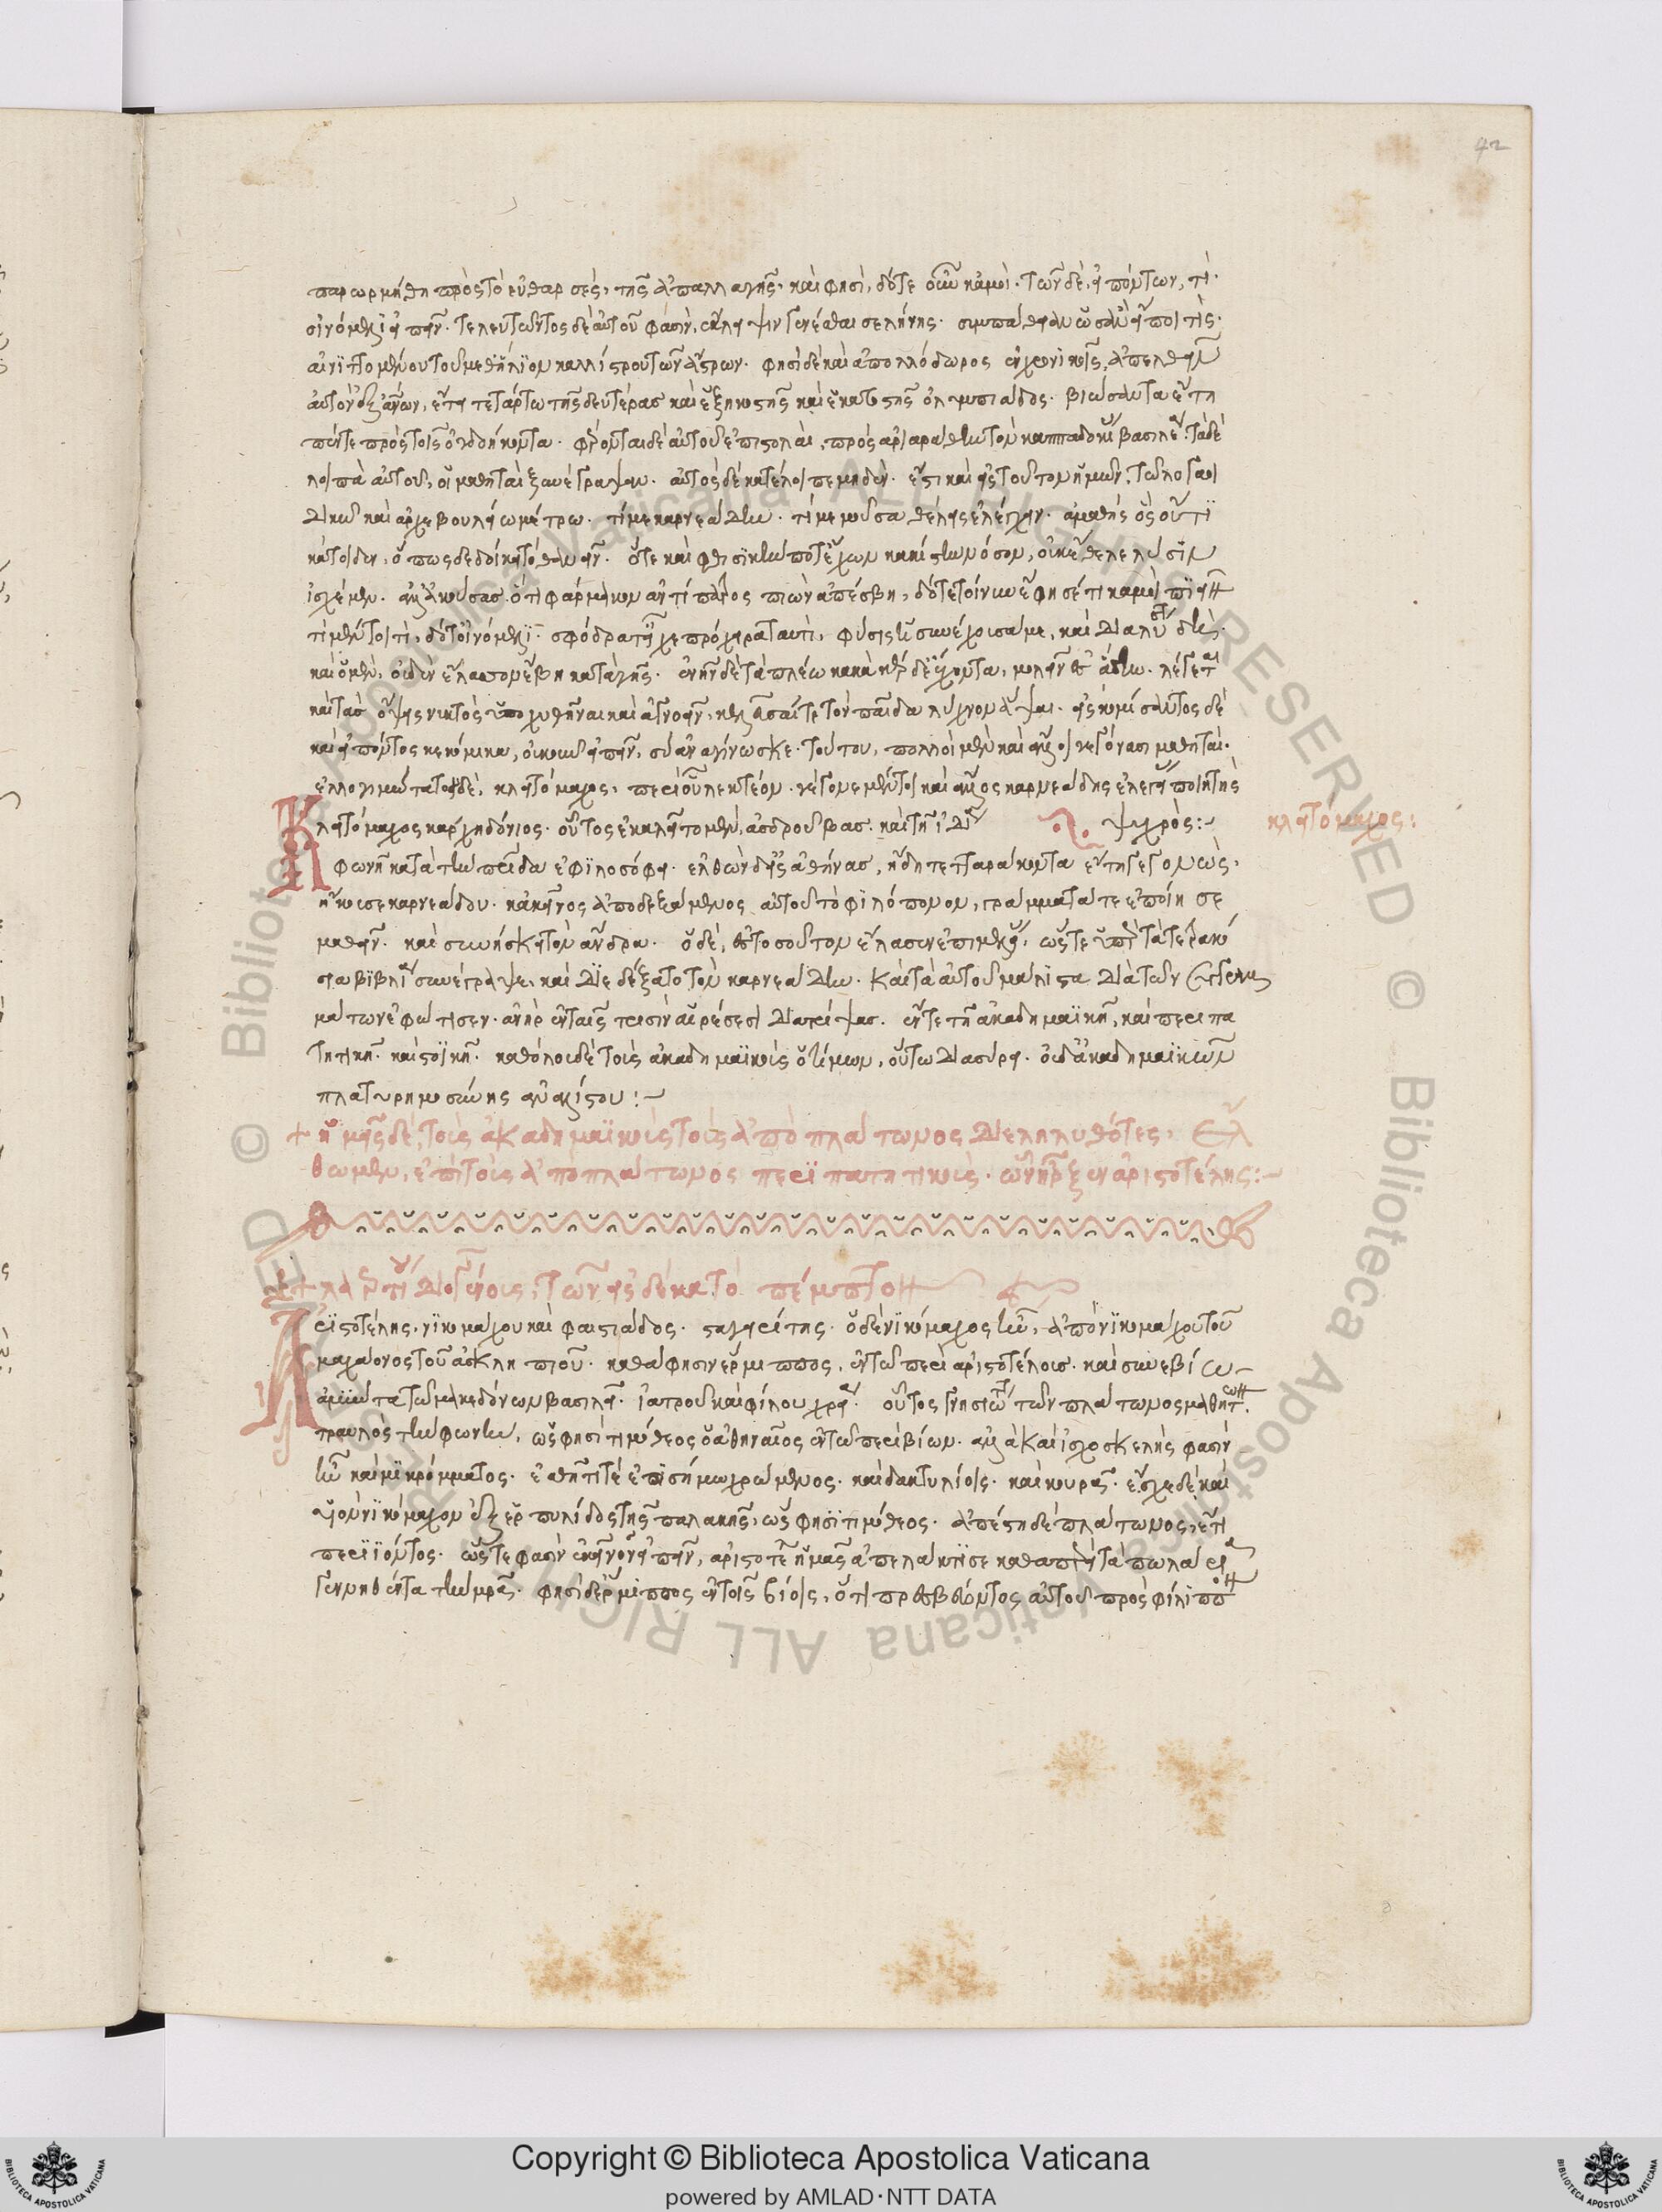 92
παρωρμήθη πρὸς τὸ εὐθαρσὲς, τῆς ἀπαλλαγῆς, καὶ φησὶ, δότε οὖν κἀμοὶ. τῶν δὲ, εἰπόντων, τί.
οἰνόμελι εἰπεῖν. τελευτῶντος δὲ αὐτοῦ φασὶν, ἔκλειψιν γενέσθαι σελήνης. συμπάθειαν ὡσὰν εἴποι τὶς.
αἰνιττομένου τοῦ μεθ' ἥλιον καλλίστου τῶν ἄστρων. φησὶ δὲ καὶ ἀπολλόδωρος ἐν χρονικοῖς, ἀπελθεῖν
αὐτὸν ἐξ ἀνων, ἔτει τετάρτω τῆς δευτέρας καὶ ἑξηκοστῆς καὶ ἑκατοστῆς ὀλυμπιάδος. βιώσαντα ἔτη
πέντε πρὸς τοῖς ὀγδοήκοντα. φέρονται δὲ αὐτοῦ ἐπιστολαὶ, πρὸς ἀριαράθην τὸν καππαδοκίας βασιλέα. τὰ δὲ
λοιπὰ αὐτοῦ, οἱ μαθηταὶ ξυνέγραψαν. αὐτὸς δὲ κατέλοιπε μηδέν. ἔστι καὶ εἰς τοῦτον ἡμῶν, τῶ λογαοι
δικῶ καὶ ἀρχεβουλείω μέτρω. τί με καρνεάδην. τί με μοῦσα θέλεις ἐλέγχειν. ἀμαθὴς ὃς οὔτι
κάτοιδεν, ὅπως δεδοίκει τὸ θανεῖν. ὅτε καὶ φθισικὴν ποτ' ἔχων κακίστην νόσον, οὐκ ἔθελε λύσιν
ἰσχέμεν. ἀλλ' ἀκούσας ὅτι φάρμακον ἀντίπατρος πιὼν ἀπέσβη, δότε τοίνυν ἔφησέ τι κἀμοὶ πιεῖν
τί μέντοι τὶ, δότ' οἰνόμελι. σφόδρα τ' εἶχε πρόχειρα ταυτὶ, φύσις ἡ συνέχουσά με, καὶ διαλύσει
καὶ ὁ μὲν, οὐδὲν ἔλασσον ἔβη κατὰ γῆς. ἐνῆν δὲ τὰ πλέω κακὰ κέρδε' ἔχοντα, μολεῖν ἐς ἅδην. λέγεται
καὶ τὰς ὄψεις νυκτὸς ὑποχυθῆναι καὶ ἀγνοεῖν, κελεῦσαί τε τὸν παῖδα λύχνον ἅψαι. εἰσκομίσαντος δὲ
καὶ εἰπόντος κεκόμικα, οὐκοῦν εἰπεῖν, σὺ ἀναγίνωσκε. τούτου, πολλοὶ μὲν καὶ ἄλλοι γεγόνασι μαθηταὶ.
ἐλλογιμώτατος δὲ, κλειτόμαχος, περὶ οὗ λεκτέον. γέγονε μέντοι καὶ ἄλλος καρνεάδης ἐλεγείας ποιητὴς
ψυχρὸς:-
κλειτόμαχος:
Κλειτόμαχος καρχηδόνιος. οὗτος ἐκαλεῖτο μὲν, ἀσδρούβας. καὶ τῆ ἰδία
φωνῆ κατὰ τὴν πατρίδα ἐφιλοσόφει. ἐλθὼν δ' εἰς ἀθήνας, ἤδη τετταράκοντα ἔτη γεγονὼς,
ἤκουσε καρνεάδου. κἀκεῖνος ἀποδεξάμενος αὐτοῦ τὸ φιλόπονον, γράμματά τε ἐποίησε
μαθεῖν. καὶ συνήσκει τὸν ἄνδρα. ὁ δὲ, ἐς τοσοῦτον ἤλασεν ἐπιμελείας, ὥστε ὑπὲρ τὰ τετρακό
σια βιβλία συνέγραψε, καὶ διεδέξατο τὸν καρνεάδην. καὶ τὰ αὐτοῦ μάλιστα διὰ τῶν συγγραμ
μάτων ἐφώτισεν. ἀνὴρ ἐν ταῖς τρισὶν αἱρέσεσι διατρίψας. ἔν τε τῆ ἀκαδημαϊκῆ, καὶ περιπα
τητικῆ. καὶ στοϊκῆ. καθόλου δὲ τοῖς ἀκαδημαϊκοῖς ὁ τίμων, οὕτω διασύρει. οὐδ' ἀκαδημαϊκῶν
πλατυρημοσύνης ἀναλίστου:-
+ ἡμεῖς δὲ, τοὺς ἀκαδημαϊκοὺς τοὺς ἀπὸ πλάτωνος διεληλυθότες, ἔλ
θωμεν, ἐπὶ τοὺς ἀπὸ πλάτωνος περιπατητικοὺς. ὧν ἦρξεν ἀριστοτέλης:-
+ λαερτίου διογένους, τῶν εἰς δέκα τὸ πέμπτον
Ἀριστοτέλης, νικομάχου καὶ φαιστιάδος. σταγειρίτης. ὁ δὲ νικόμαχος ἦν, ἀπὸ νικομάχου τοῦ
μαχάονος τοῦ ἀσκληπιοῦ. καθά φησιν ἕρμιππος, ἐν τῶ περὶ ἀριστοτέλους. καὶ συνεβίω
ἀμύντα τῶ μακεδόνων βασιλεῖ. ἰατροῦ καὶ φίλου χρεία. οὗτος γνησιώτατος τῶν πλάτωνος μαθητῶν.
τραυλὸς τὴν φωνὴν, ὥς φησι τιμόθεος ὁ ἀθηναῖος ἐν τῶ περὶ βίων. ἀλλὰ καὶ ἰσχοσκελὴς φασὶν
ἦν καὶ μικρόμματος. ἐσθῆτί τε ἐπισήμω χρώμενος. καὶ δακτυλίοις. καὶ κουρᾶ. ἔσχε δὲ καὶ
υἱὸν νικόμαχον ἐξ ἑρπυλίδος τῆς παλακῆς, ὥς φησι τιμόθεος. ἀπέστη δὲ πλάτωνος, ἔτι
περιϊόντος. ὥστε φασὶν ἐκεῖνον εἰπεῖν, ἀριστοτέλης ἡμᾶς ἀπελάκτισε καθαπερεὶ τὰ πωλάρια
γεννηθέντα τὴν μητέρα. φησὶ δ' ἕρμιππος ἐν τοῖς βίοις, ὅτι πρεσβεύοντος αὐτοῦ πρὸς φίλιππον
Copyright © Biblioteca Apostolica Vaticana
powered by AMLAD·NTT DATA